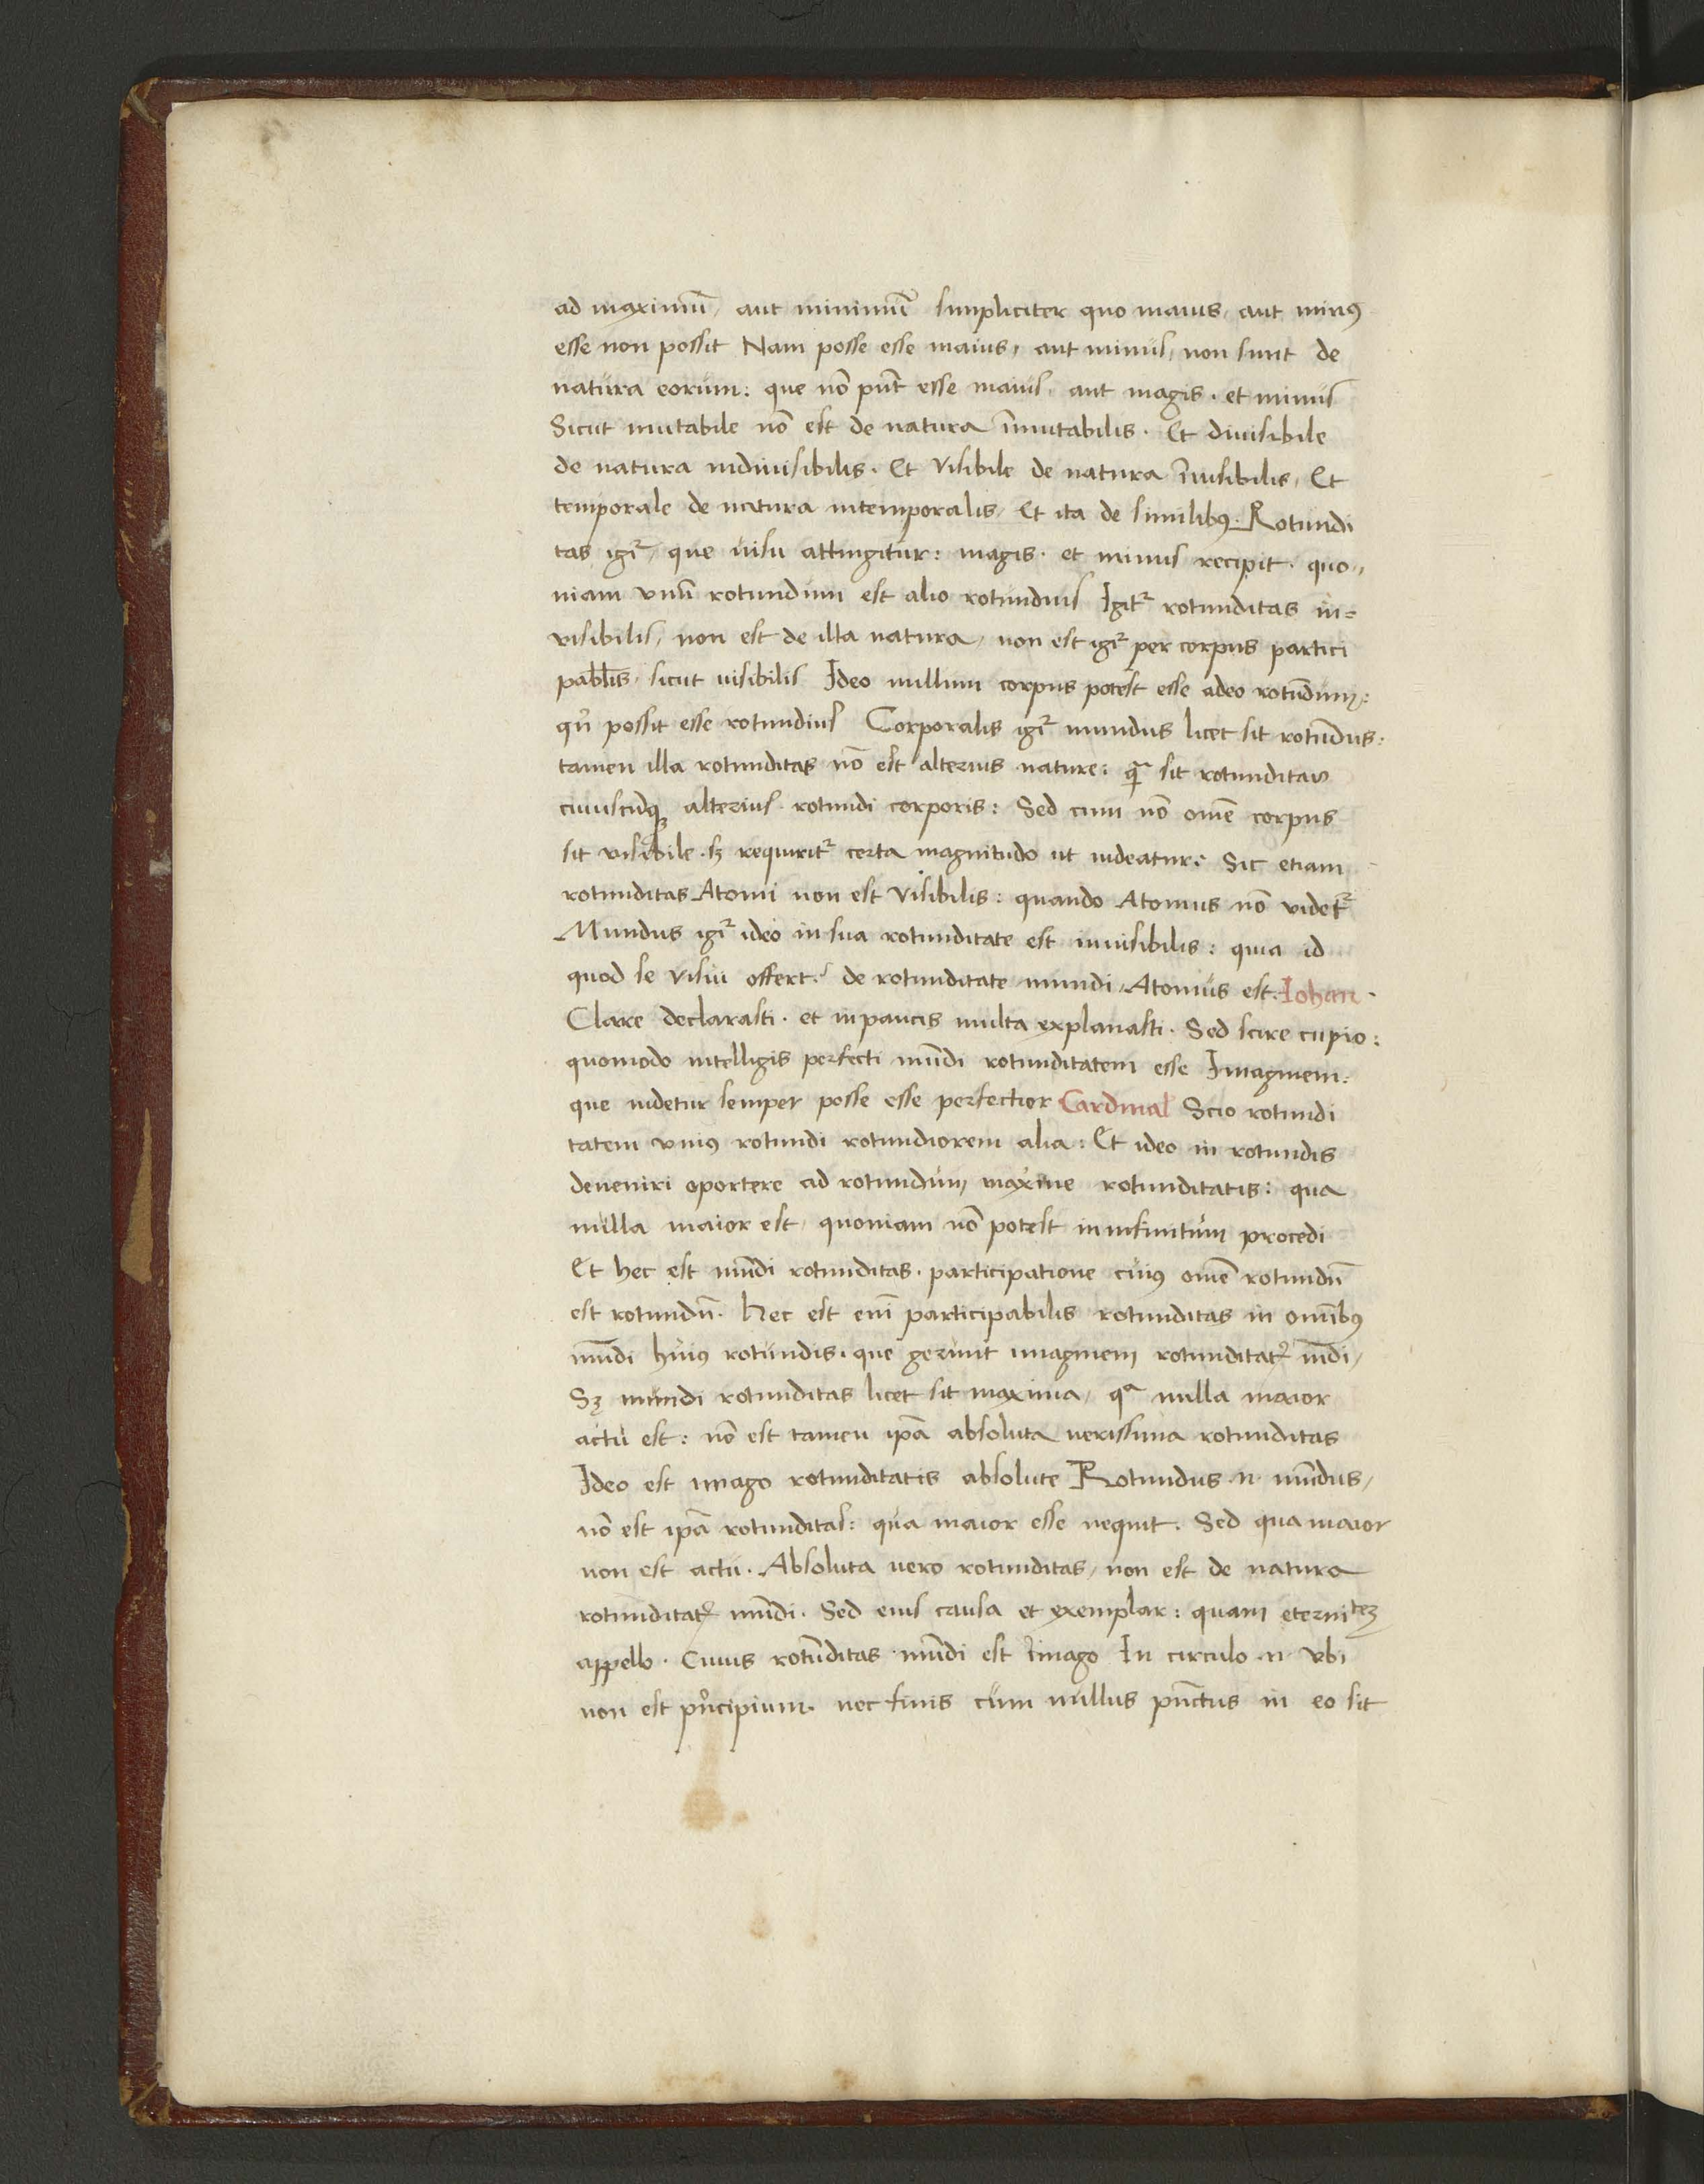 ad maximū, aut minimū simpliciter quo maius, aut minꝰ
esse non possit Nam posse esse maius, aut minus, non sunt de
natura eorum: que nō pñt esse maius, aut magis. et minus
Sicut mutabile nō est de natura īmutabilis. Et diuisibile
de natura indiuisibilis. Et visibile de natura īuisibilis, Et
temporale de natura intemporalis, Et ita de similibꝰ. Rotundi
tas igr̃, que uisu attingitur: magis. et minus recipit. quo„
niam vnū rotundum est alio rotundius Igit̃ rotunditas in=
visibilis, non est de illa natura, non est igr̃ per corpus partici
pabl̄is, sicut uisibilis Ideo nullum corpus potest esse adeo rotūdum:
qn̄ possit esse rotundius Corporalis igr̃ mundus licet sit rotūdus:
tamen illa rotunditas nō est alterius nature: q̃ sit rotunditas
cuiuscūqꝫ alterius rotundi corporis: Sed cum nō omē corpus
sit visibile. sꝫ requirit̃ certa magnitudo ut uideatur: Sic etiam
rotunditas Atomi non est visibilis: quando Atomus nō videt̃
Mundus igr̃ ideo in sua rotunditate est inuisibilis: quia id
quod se visui offert: de rotunditate mundi, Atomus est. Iohan.
Clare declarasti. et in paucis multa explanasti. Sed scire cupio:
quomodo intelligis perfecti mūdi rotunditatem esse Imaginem:
que uidetur semper posse esse perfectior Cardinal Scio rotundi
tatem vniꝰ rotundi rotundiorem alia: Et ideo in rotundis
deueniri oportere ad rotundum, maxime rotunditatis: qua
nulla maior est, quoniam nō potest in infinitum procedi
Et hec est mūdi rotunditas. participatione cuiꝰ omē rotundū
est rotundū. Hec est eni̅ participabilis rotunditas in omībꝰ
mūdi huiꝰ rotundis. que gerunt imaginem rotunditat̃ mdi,
Sꝫ mundi rotunditas licet sit maxima, qᵃ nulla maior
actu est: nō est tamen ip̄a absoluta uerissima rotunditas
Ideo est imago rotunditatis absolute Rotundus .n. mūdus,
nō est ip̄a rotunditas: qua maior esse nequit. Sed qua maior
non est actu. Absoluta uero rotunditas, non est de natura
rotunditat̃ mūdi. Sed eius causa et exemplar: quam eterniteꝫ
appello. Cuius rotūditas mūdi est imago In circulo .n. vbi
non est pn̄cipium. nec finis cum nullus pūctus in eo sit